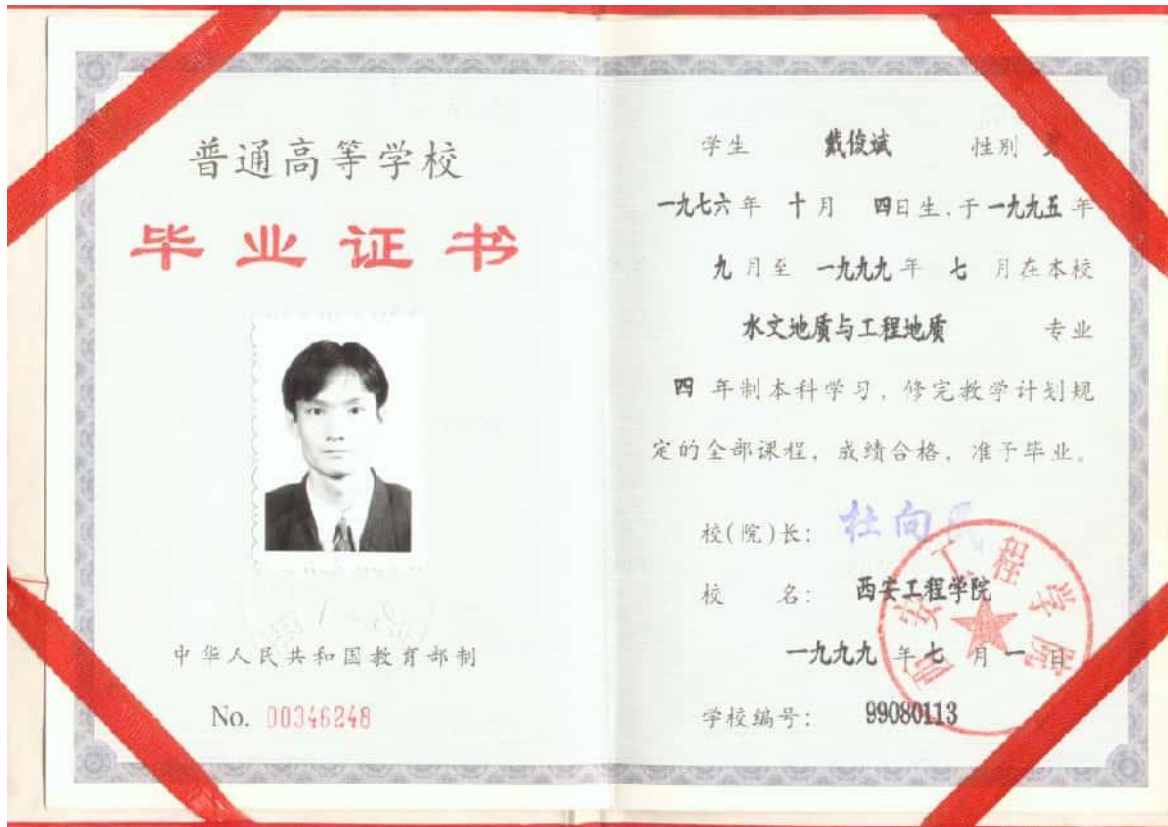 普通高等学校
毕业证书
中华人民共和国教育部制
No. 00346248
学生 戴俊斌 性别
一九七六年 十月 四日生,于一九九五年
九月至 一九九九年 七 月在本校
水文地质与工程地质 专业
四 年制本科学习,修完教学计划规
定的全部课程,成绩合格,准予毕业。
校(院)长: 杜向民
校 名: 西安工程学院
一九九九年七月一日
学校编号: 99080113
西安工程学院